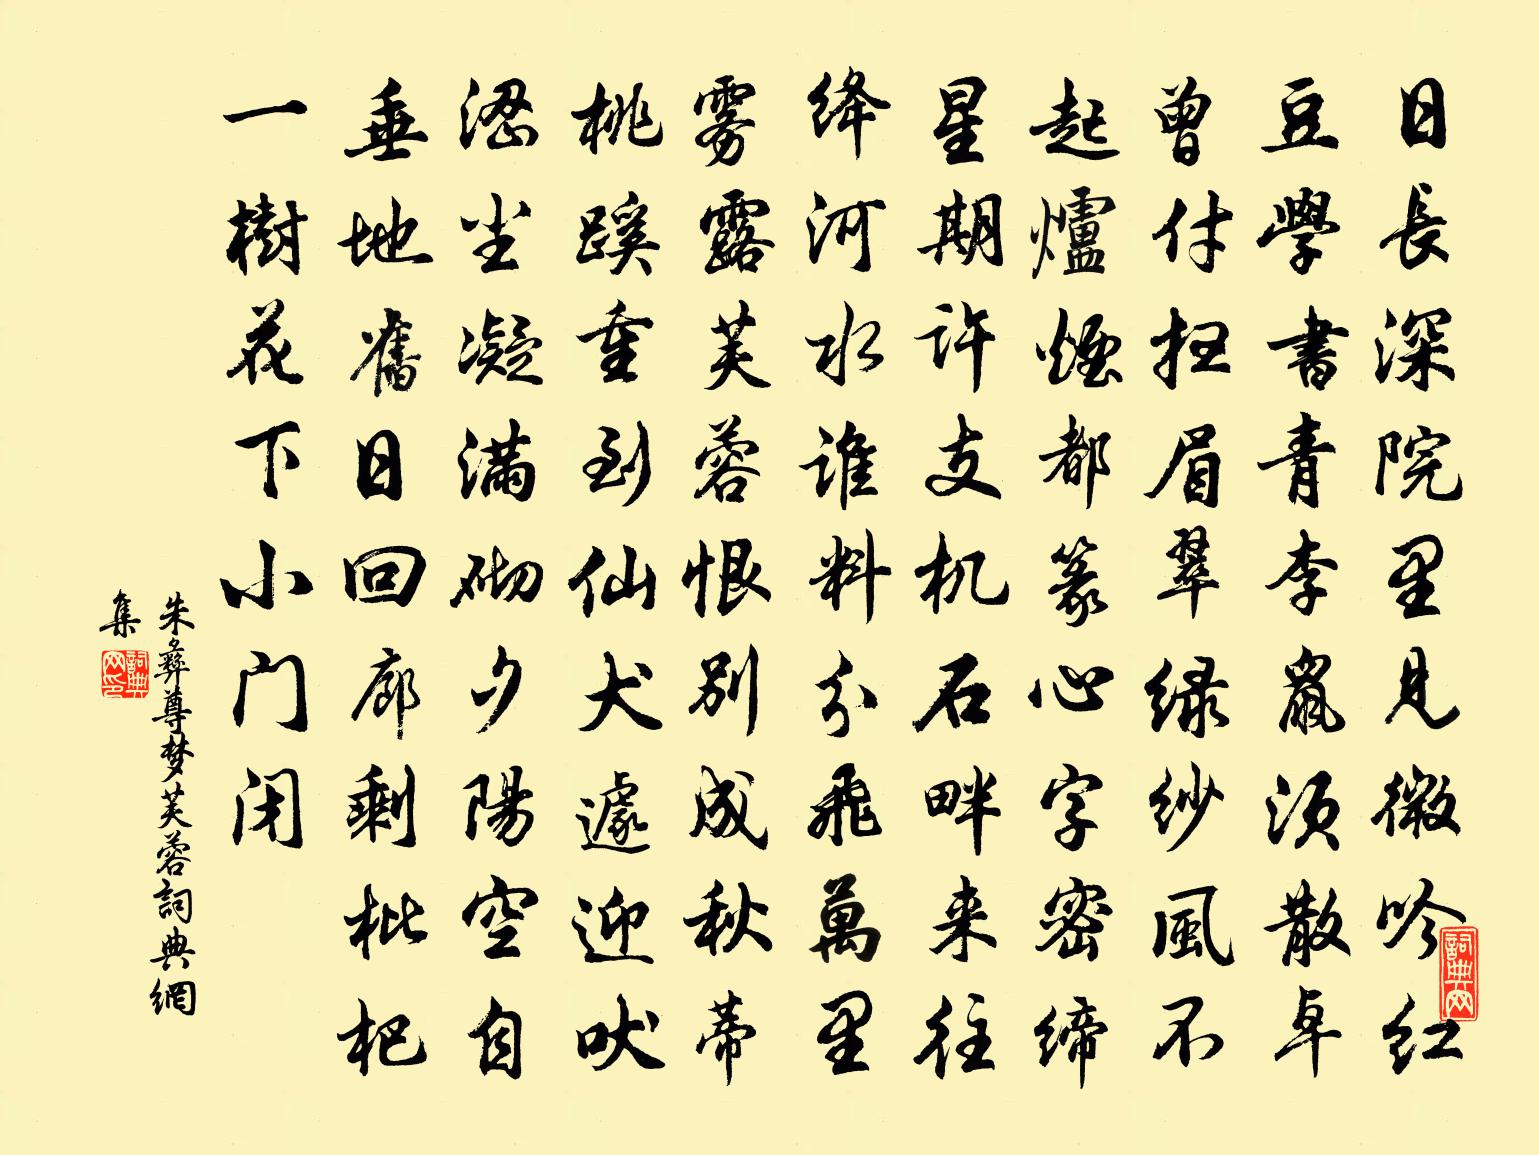 日長深院里見微吟红
豆學書青李鼠须散卓
曾付扫眉翠绿纱風不
起爐煙都篆心字密缔
星期许支机石畔来往
绛河水谁料分飛萬里
雾露芙蓉恨别成秋蒂
桃蹊重到仙犬遽迎吠
涩尘凝满砌夕陽空自
垂地舊日回廊剩枇杷
一樹花下小门闭
朱彝尊梦芙蓉詞典網
集
詞典网印
詞典网